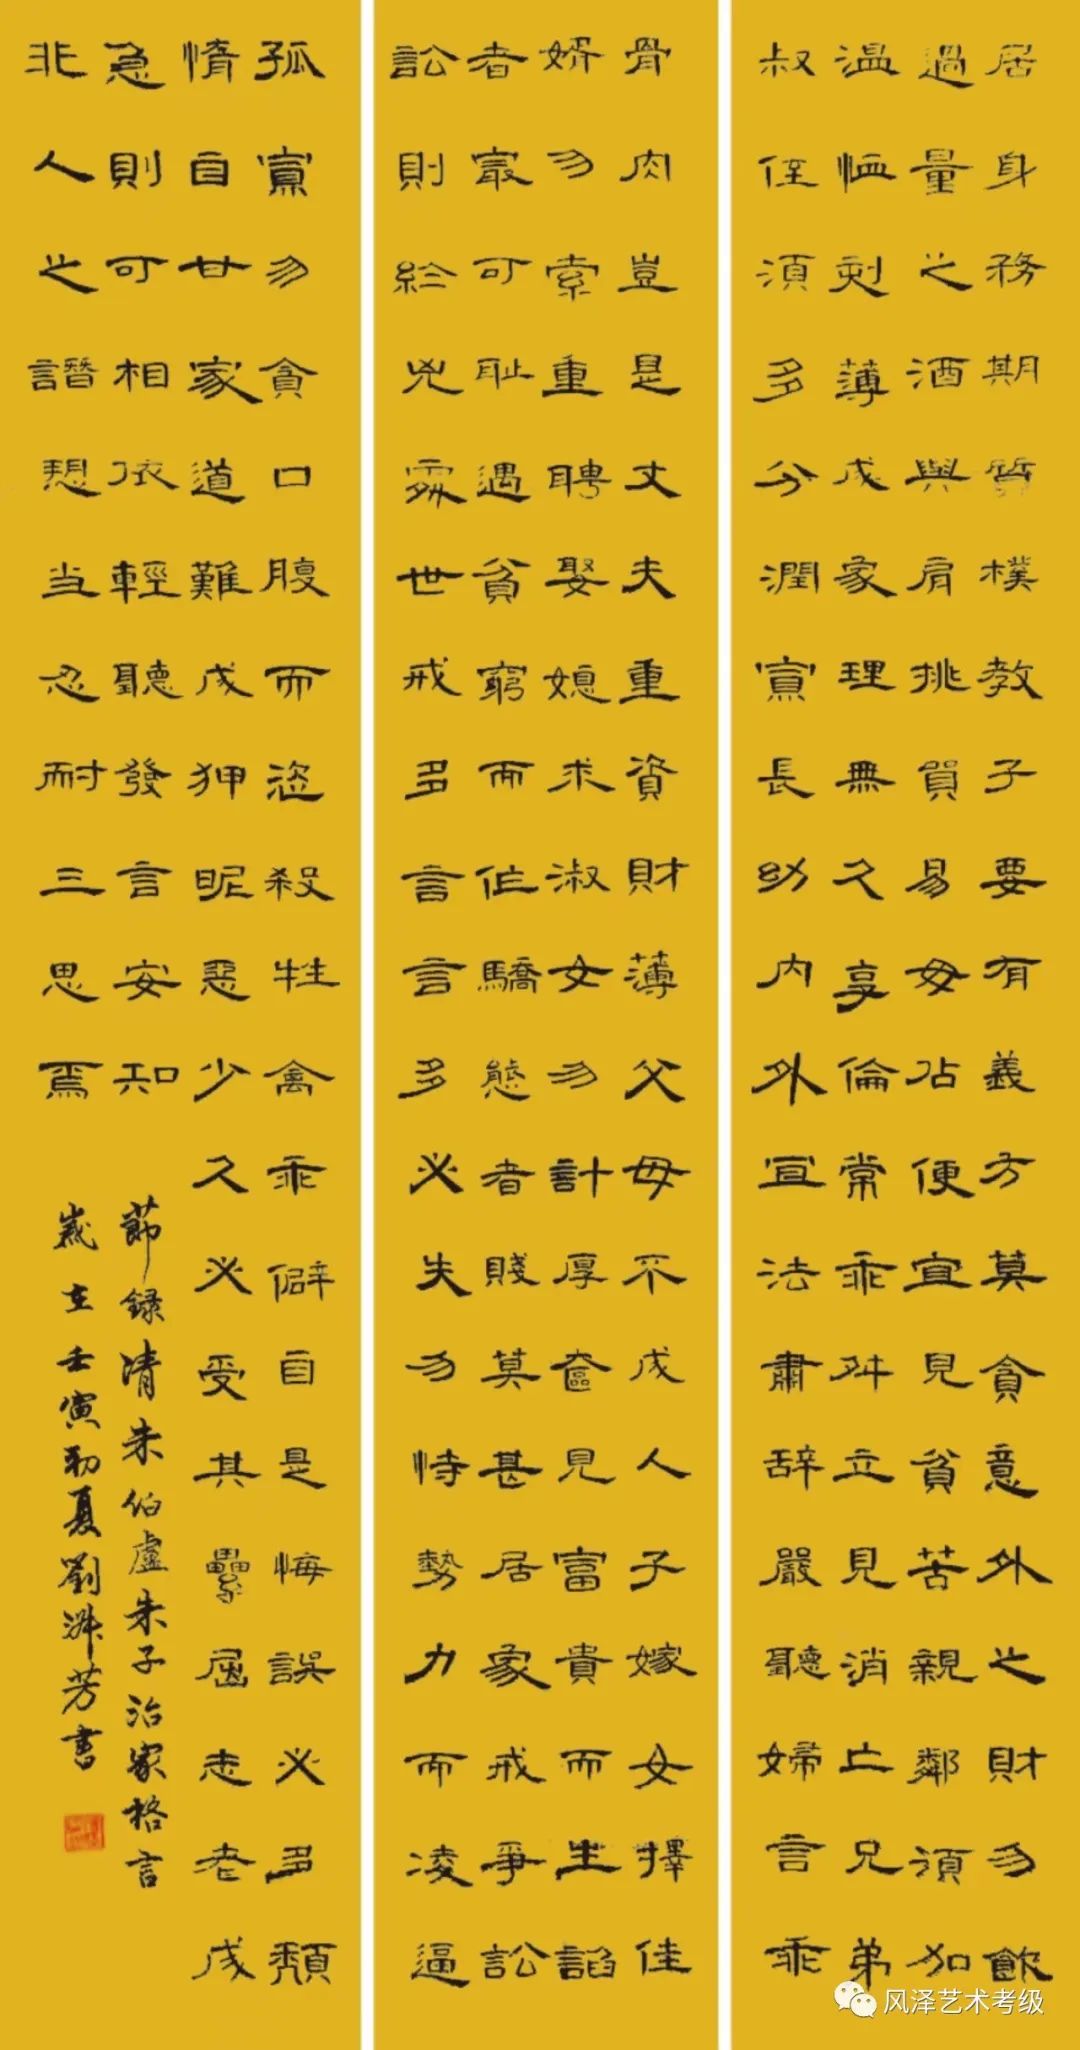 居身務期質樸教子要有義方莫貪意外之財勿飲
過量之酒與肩挑貿易毋佔便宜見貧苦親鄰須加
温恤刻薄成家理無久享倫常乖舛立見消亡兄弟
叔侄須多分潤寡長幼內外宜法肅辞嚴聽婦言乖
骨肉豈是丈夫重資財薄父母不成人子嫁女擇佳
婿勿索重聘娶媳求淑女勿計厚奩見富貴而生諂
者最可耻遇貧窮而作驕態者賤莫甚居家戒爭訟
訟則終兇處世戒多言言多必失勿恃勢力而凌逼
孤寡勿貪口腹而恣殺牲禽乖僻自是悔誤必多頹
惰自甘家道難成狎昵惡少久必受其纍屈志老成
急則可相依輕聽發言安知
非人之譖愬当忍耐三思焉
節録清朱伯盧朱子治家格言
歲在壬寅初夏劉淑芳書
风泽艺术考级